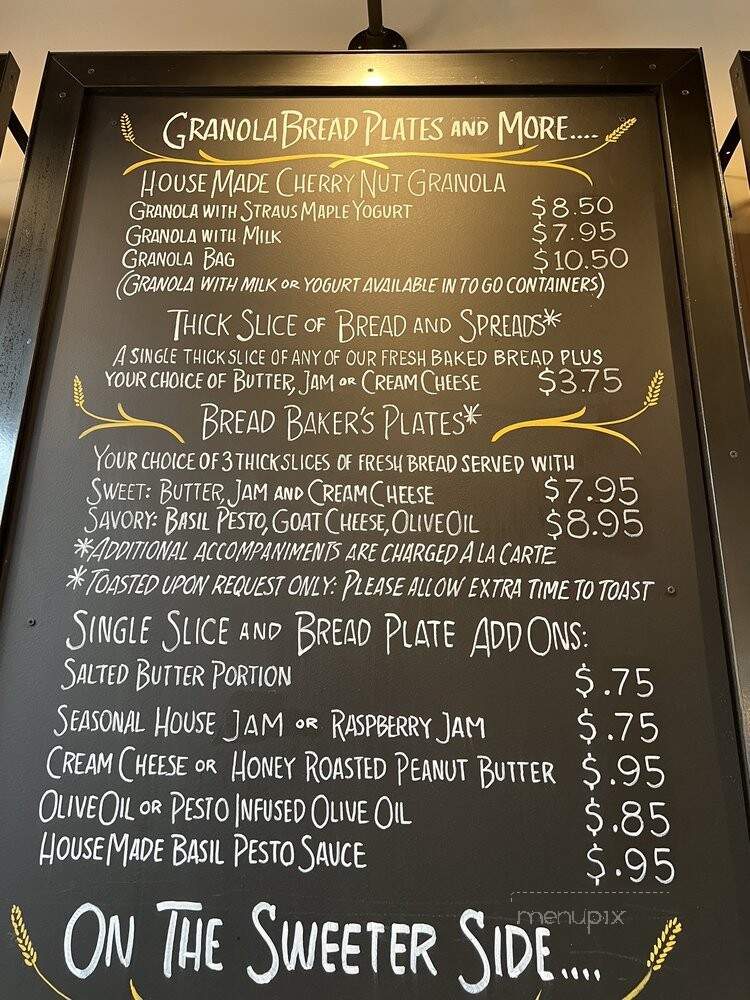 GRANOLA BREAD PLATES AND MORE....
HOUSE MADE CHERRY NUT GRANOLA
GRANOLA WITH STRAUS MAPLE YOGURT $8.50
GRANOLA WITH MILK $7.95
GRANOLA BAG $10.50
(GRANOLA WITH MILK OR YOGURT AVAILABLE IN TO GO CONTAINERS)
THICK SLICE OF BREAD AND SPREADS*
A SINGLE THICK SLICE OF ANY OF OUR FRESH BAKED BREAD PLUS
YOUR CHOICE OF BUTTER, JAM OR CREAM CHEESE $3.75
BREAD BAKER'S PLATES*
YOUR CHOICE OF 3 THICK SLICES OF FRESH BREAD SERVED WITH
SWEET: BUTTER, JAM AND CREAM CHEESE $7.95
SAVORY: BASIL PESTO, GOAT CHEESE, OLIVE OIL $8.95
*ADDITIONAL ACCOMPANIMENTS ARE CHARGED A LA CARTE
*TOASTED UPON REQUEST ONLY: PLEASE ALLOW EXTRA TIME TO TOAST
SINGLE SLICE AND BREAD PLATE ADD ONS:
SALTED BUTTER PORTION $.75
SEASONAL HOUSE JAM OR RASPBERRY JAM $.75
CREAM CHEESE OR HONEY ROASTED PEANUT BUTTER $.95
OLIVE OIL OR PESTO INFUSED OLIVE OIL $.85
HOUSE MADE BASIL PESTO SAUCE $.95
menupix
ON THE SWEETER SIDE....